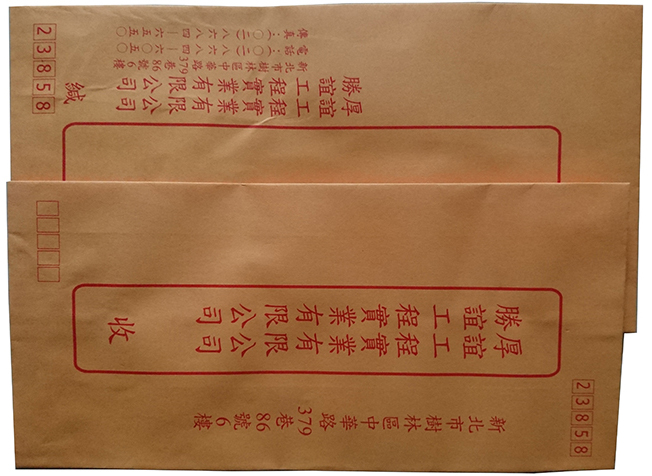 23858
厚誼工程實業有限公司
勝誼工程實業有限公司
新北市樹林區中華路379巷86號6樓
電話：(〇二)八六八四
傳真：(〇二)八六八四
緘
23858
新北市樹林區中華路379巷86號6樓
厚誼工程實業有限公司
勝誼工程實業有限公司
收